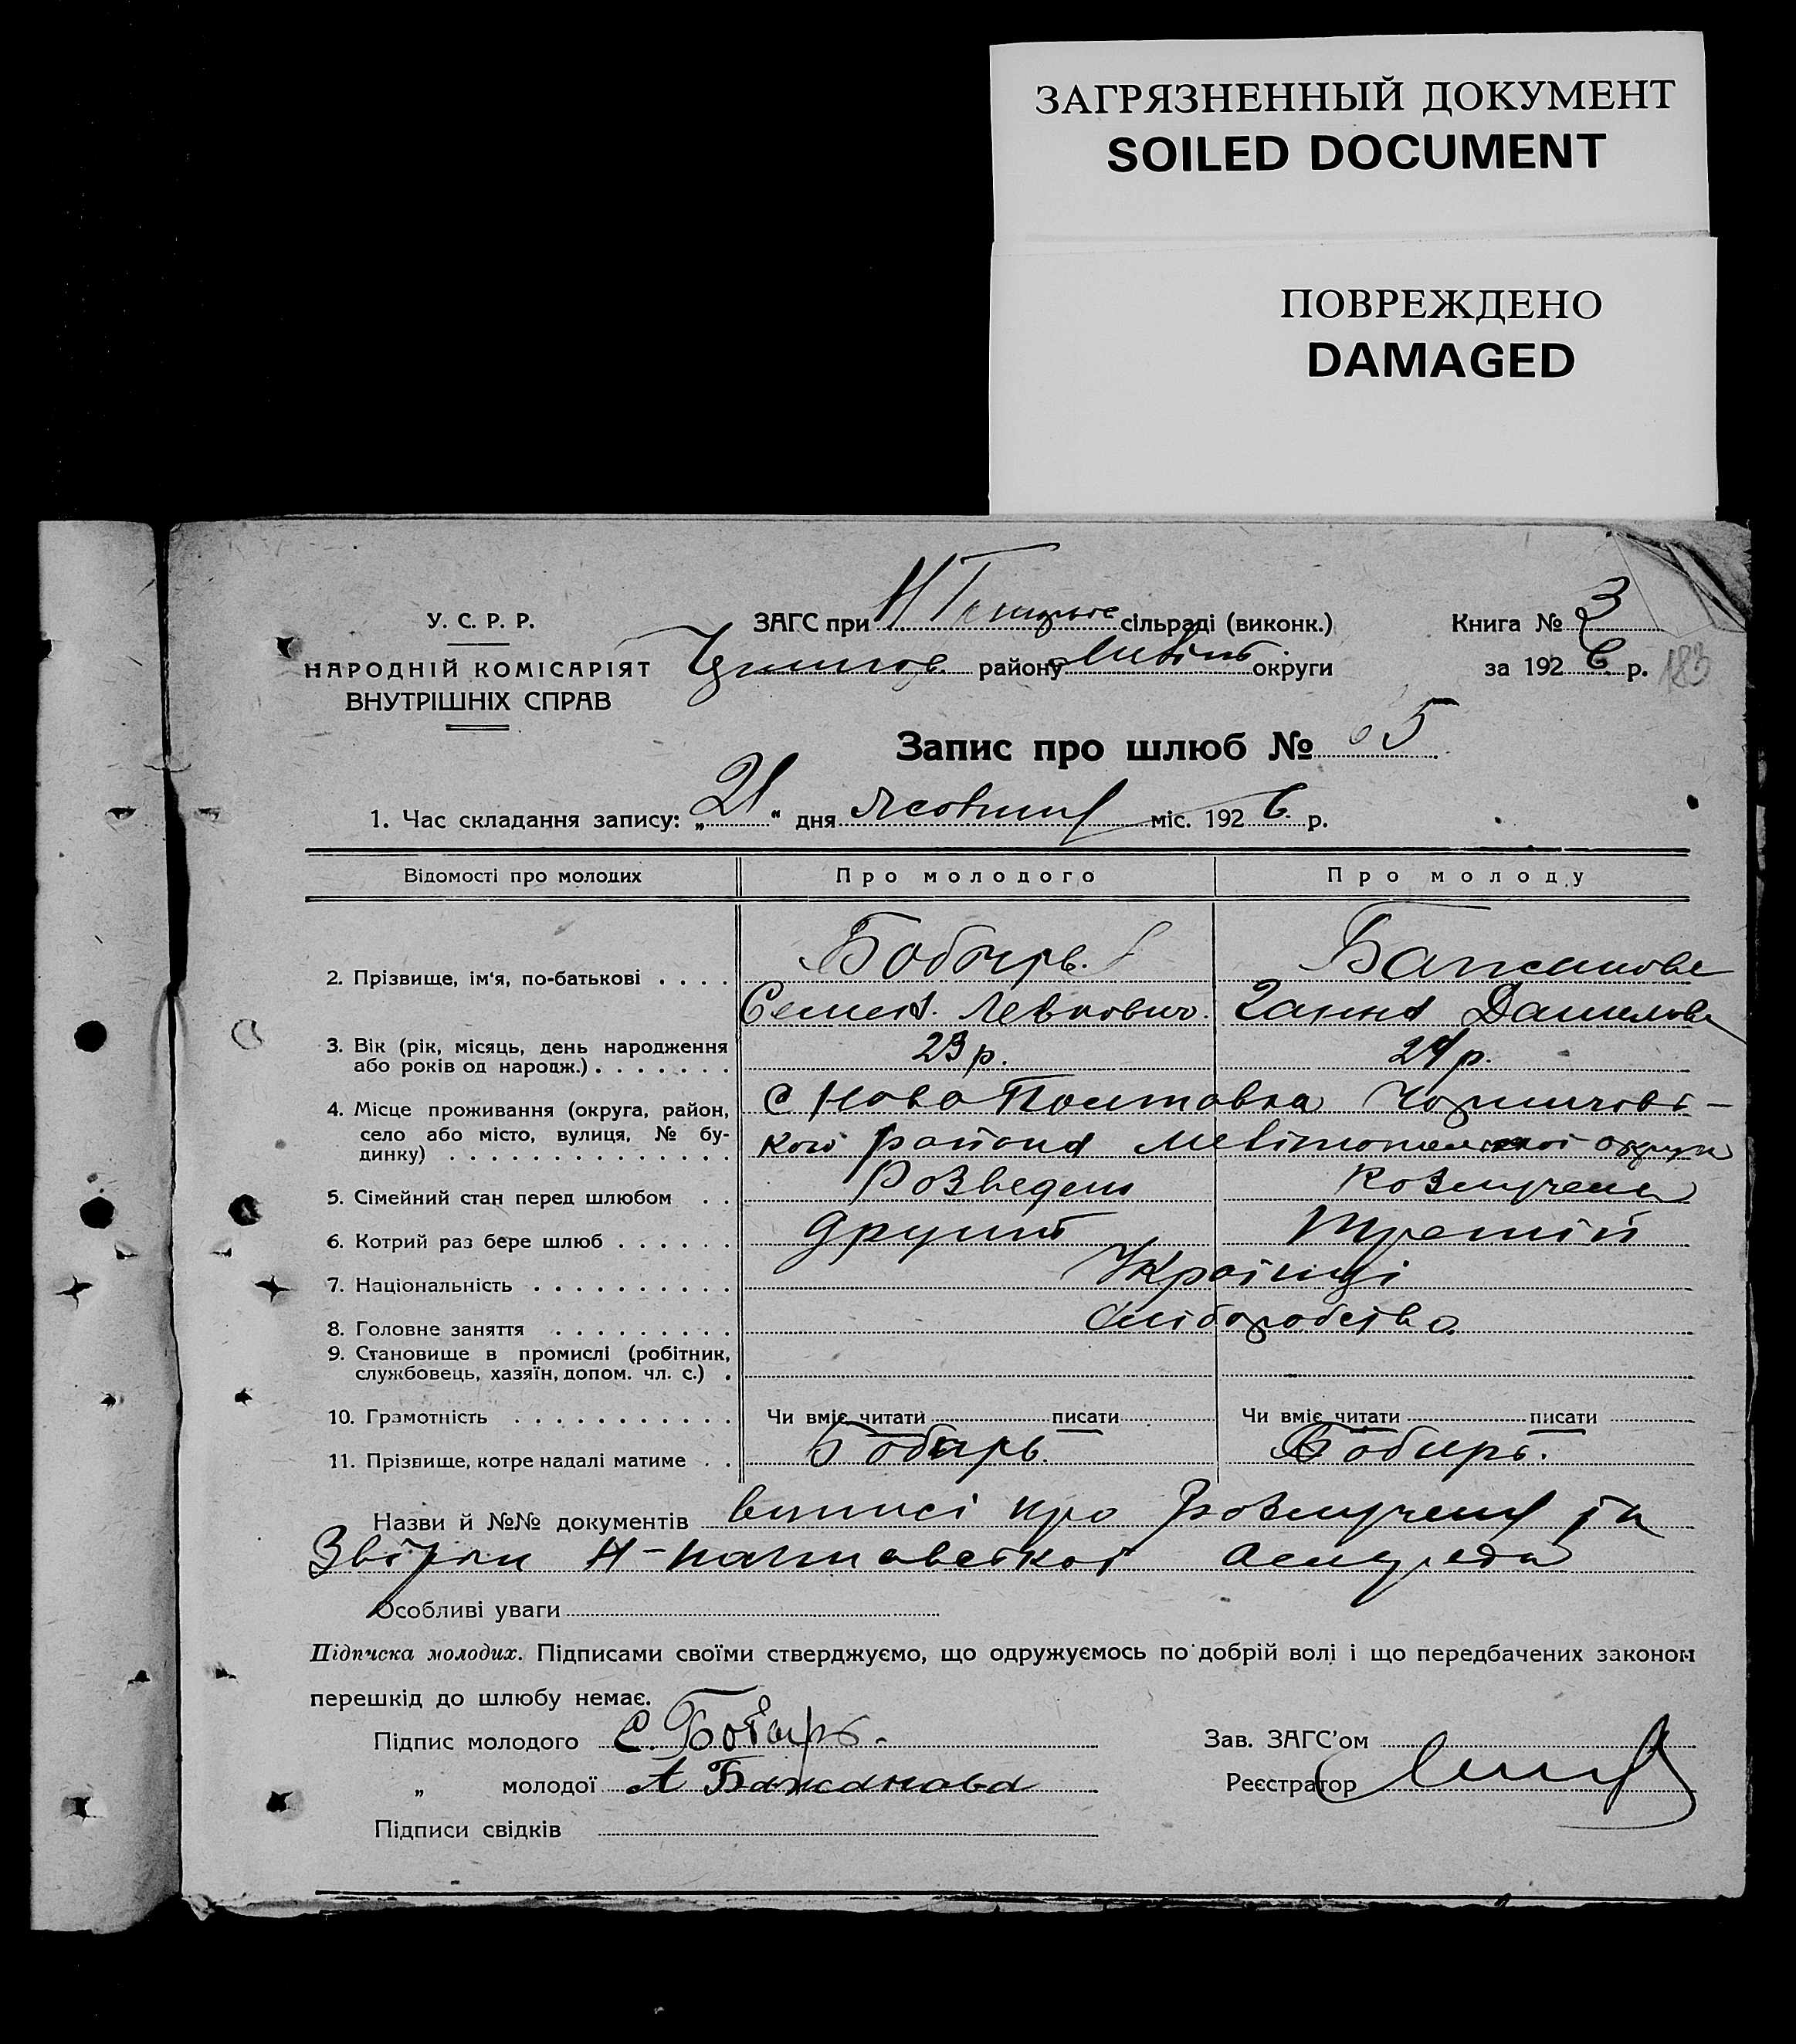 ЗАГРЯЗНЕННЫЙ ДОКУМЕНТ
SOILED DOCUMENT
ПОВРЕЖДЕНО
DAMAGED
У. С. Р. Р.
НАРОДНІЙ КОМІСАРІЯТ
ВНУТРІШНІХ СПРАВ
ЗАГС при сільраді (виконк.)
району округи
Книга № 3
за 1926 р.
183
Запис про шлюб № 5
1. Час складання запису: „21“ дня міс. 1926 р.
Відомості про молодих Про молодого Про молоду
2. Прізвище, ім'я, по-батькові . . . . Бобирь Бажанова
Семен Левкович Ганна Данилова
3. Вік (рік, місяць, день народження
або років од народж.) . . . . . . . 23 р. 24 р.
4. Місце проживання (округа, район, с Ново Полтавка
село або місто, вулиця, № бу-
динку) . . . . . . . . . . . . . . кого района Мелітопольскої округи
5. Сімейний стан перед шлюбом . . Розведен Розлучена
6. Котрий раз бере шлюб . . . . . . другий третій
7. Національність . . . . . . . . . . Українці
8. Головне заняття . . . . . . . . . Хліборобство
9. Становище в промислі (робітник,
службовець, хазяїн, допом. чл. с.) .
10. Грамотність . . . . . . . . . . . Чи вміє читати писати Чи вміє читати писати
11. Прізвище, котре надалі матиме . . Бобирь. Бобирь.
Назви й №№ документів виписі про розлучення та
Н-полтавської
Особливі уваги
Підписка молодих. Підписами своїми стверджуємо, що одружуємось по добрій волі і що передбачених законом
перешкід до шлюбу немає.
Підпис молодого С. Бобырь.
„ молодої А Бажанова
Підписи свідків
Зав. ЗАГС'ом
Реєстратор